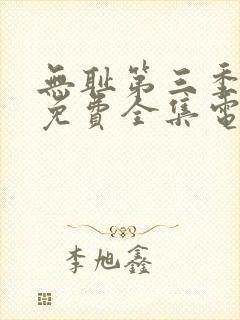 無耻第三季
免費全集電
李旭鑫